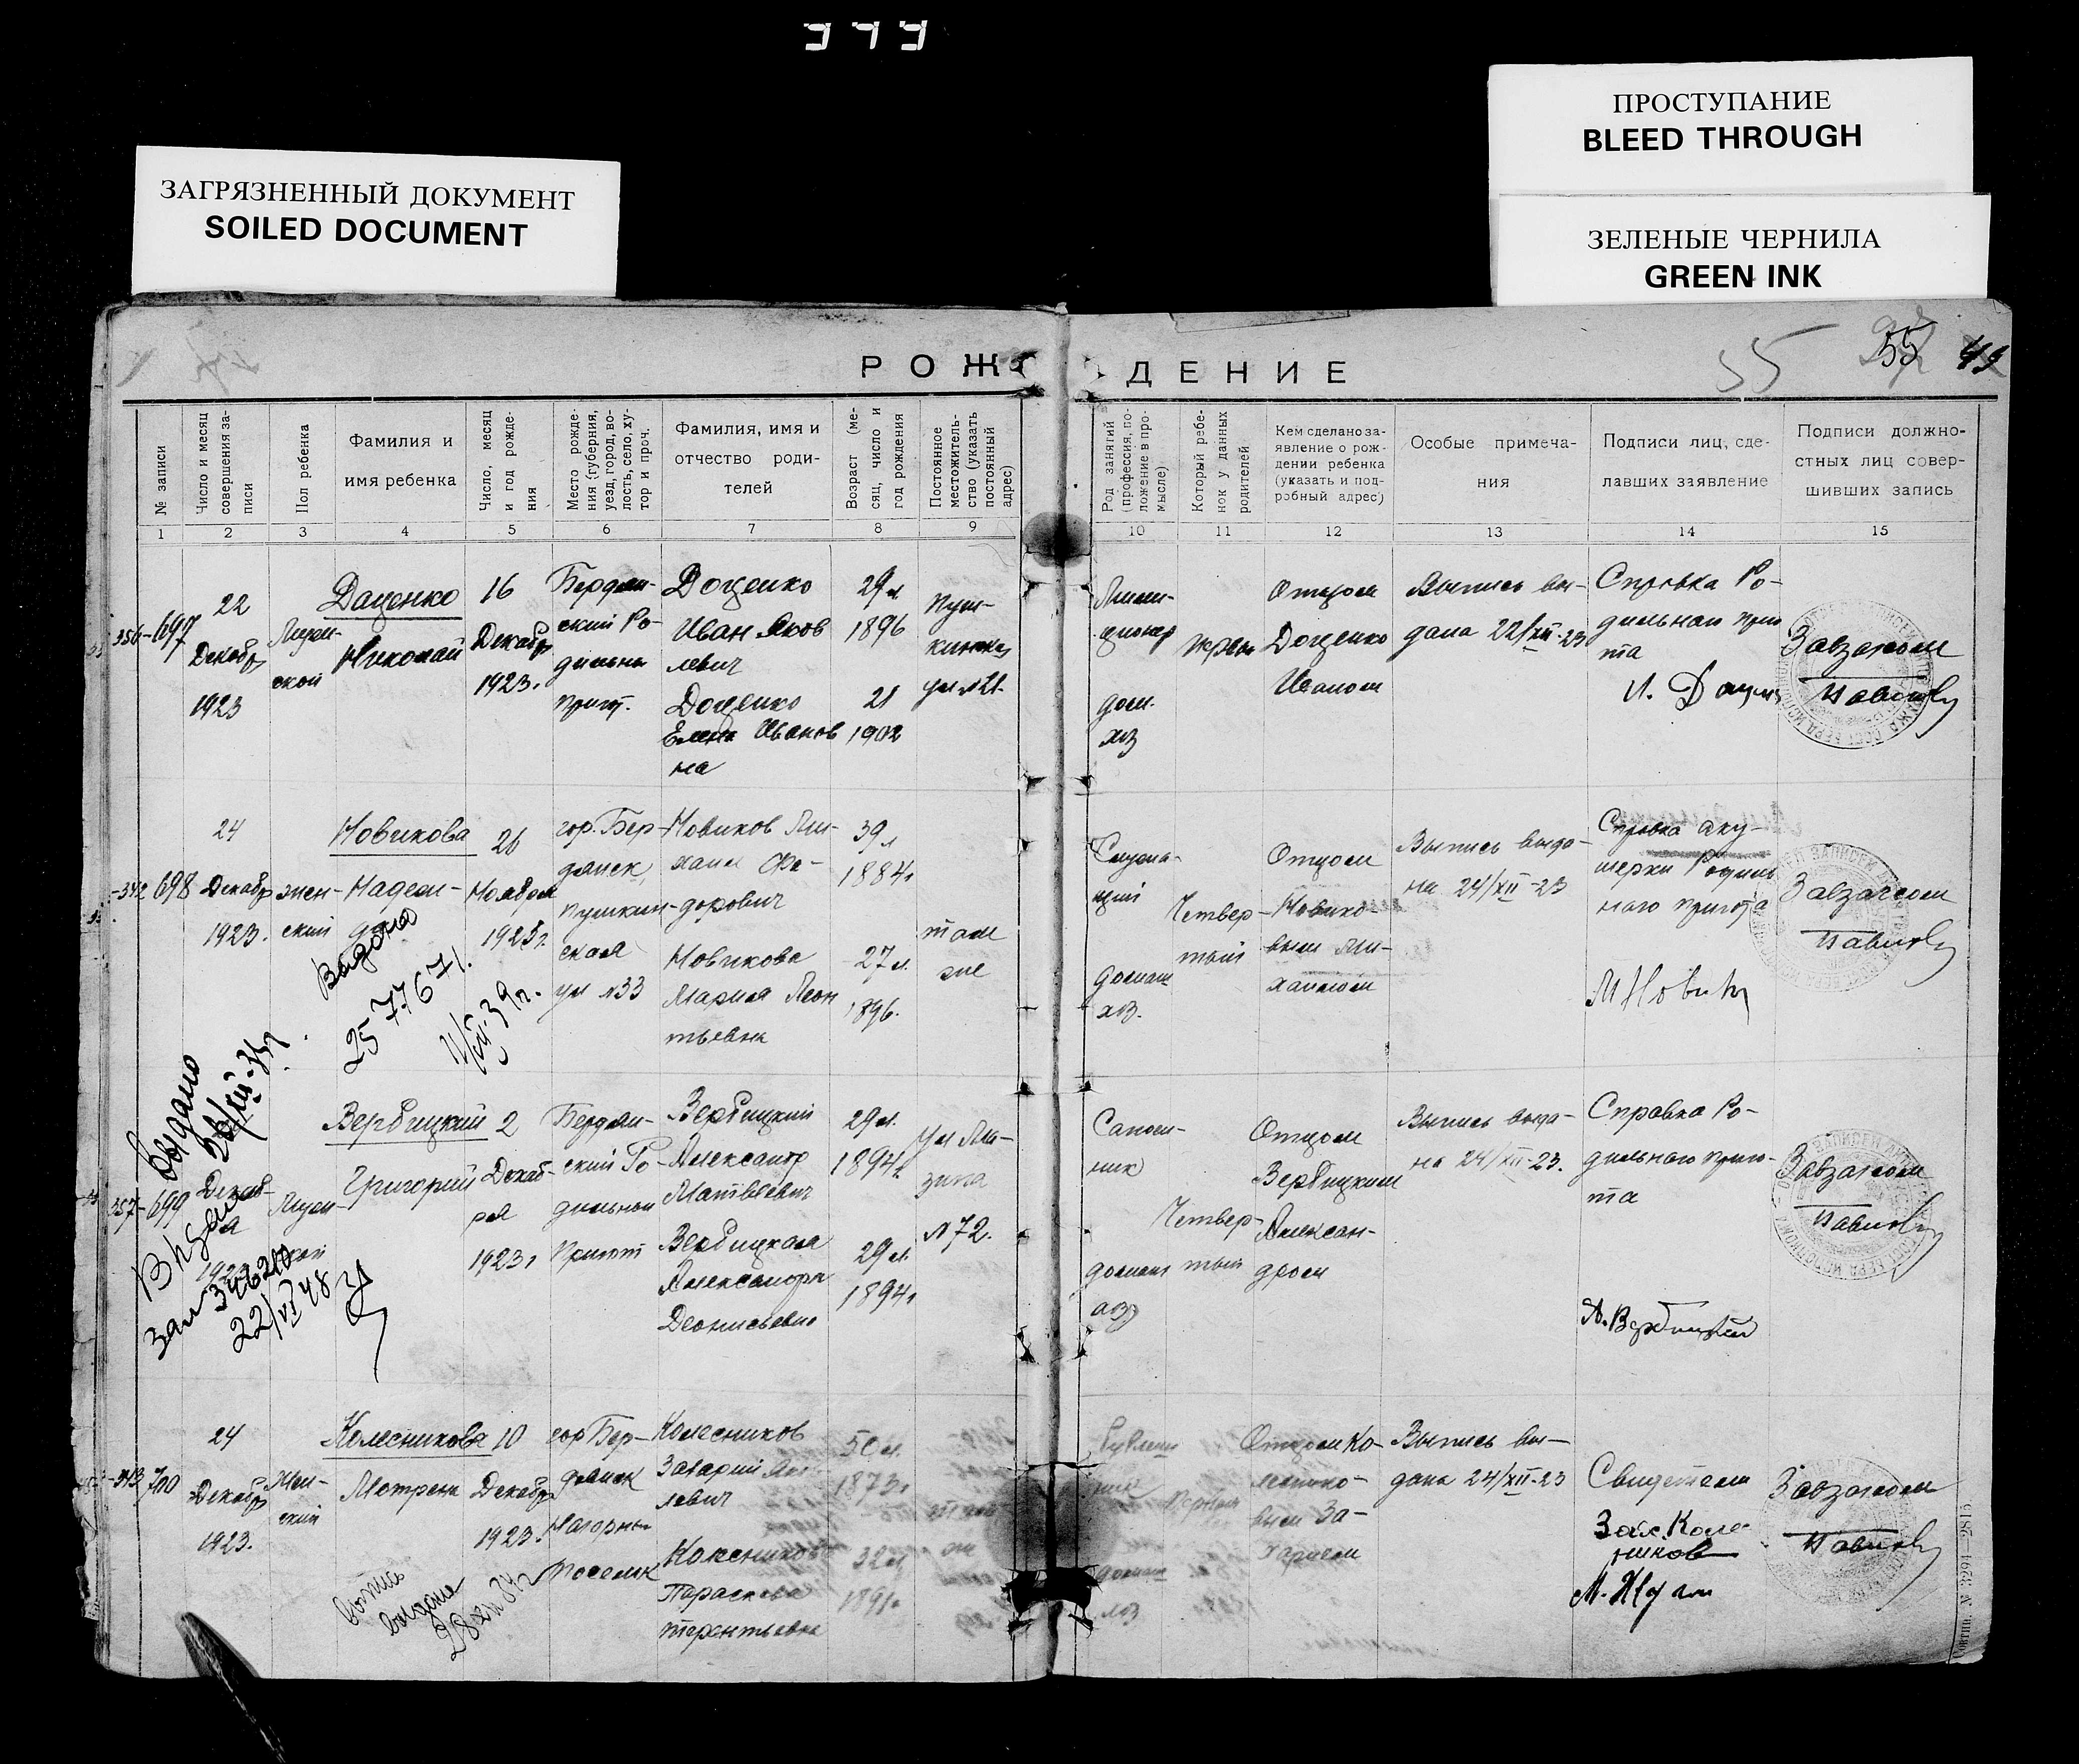 ЗАГРЯЗНЕННЫЙ ДОКУМЕНТ
SOILED DOCUMENT
ПРОСТУПАНИЕ
BLEED THROUGH
ЗЕЛЕНЫЕ ЧЕРНИЛА
GREEN INK
РОЖДЕНИЕ
55
55
№ записи
Число и месяц совершения за-
писи
Пол ребенка
Фамилия и
имя ребенка
Число, месяц
и год рожде-
ния
Место рожде-
ния (губерния,
уезд, город, во-
лость, село, ху-
тор и проч.
Фамилия, имя и
отчество роди-
телей
Возраст (ме-
сяц, число и
год рождения
Постоянное
местожитель-
ство (указать
постоянный
адрес)
Род занятий
(профессия, по-
ложение в про-
мысле)
Который ребе-
нок у данных
родителей
Кем сделано за-
явление о рож-
дении ребенка
(указать и под-
робный адрес)
Особые примеча-
ния
Подписи лиц, сде-
лавших заявление
Подписи должно-
стных лиц совер-
шивших запись
1 2 3 4 5 6 7 8 9 10 11 12 13 14 15
356-697
22
Декабр
1923
Мужс-
ской
Даценко
Николай
16
Декабр
1923.
Бердян-
ский Ро-
дильны
приют.
Доценко
Иван Яков
левич
Доценко
Елена Иванов
на
29 л
1896
21
1902
Пуш-
кинска
ул №21.
дом.
хоз
первы
Отцом
Доценко
Иваном
Выпись вы-
дана 22/XII-23
Справка Ро-
дильнаго прию
та
И. Даценк
Завзагсом
-342 698
24
Декабр
1923.
жен-
ский
Новикова
Надеж-
да
26
Ноября
1923г.
гор. Бер-
дянск
Пушкин-
ская
ул №33
Новиков Ми-
хаил Фе-
дорович
Новикова
Мария Леон
тьевна
39 л
1884г
27 л.
1896.
там
же
Служа-
щий
домаш
хоз.
Четвер-
тый
Отцом
Новико-
вым Ми-
хаилом
Выпись выда-
на 24/XII-23
Справка аку-
шерки Родиль
наго приюта
М Новик
Завзагсом
Выдано
257767
Выдано
357-699
Декаб-
ря
Мужс-
ской
Вербицкий
Григорий
2
Декаб-
ря
1923г
Бердян-
ский Ро-
дильный
Приют
Вербицкий
Александр
Матвеевич
Вербицкая
Александра
Деонисьевна
29 л.
1894г.
29 л.
1894г
Ул Ма-
зина
№72.
Сапож-
ник
домаш
хоз
Четвер-
тый
Отцом
Вербицким
Алексан-
дром
Выпись выда-
на 24/XII-23.
Справка Ро-
дильнаго прию-
та
А. Вербицкий
Завзагсом
22/VI 48
-343 700
24
Декабр
1923.
Жен-
ский
Колесникова
Мотрена
10
Декабр
1923.
гор Бер-
дянск
Нагорны
Поселок
Колесников
Захарий
левич
Колесникова
Параскева
Терентьевна
50 л.
1873г
32 л.
1891г.
домаш
хоз
первый
Отцом Ко-
леснико-
вым За-
харием
Выпись вы-
дана 24/XII-23
Свидетели
Зах. Колес
ников
Завзагсом
выпись
выдана